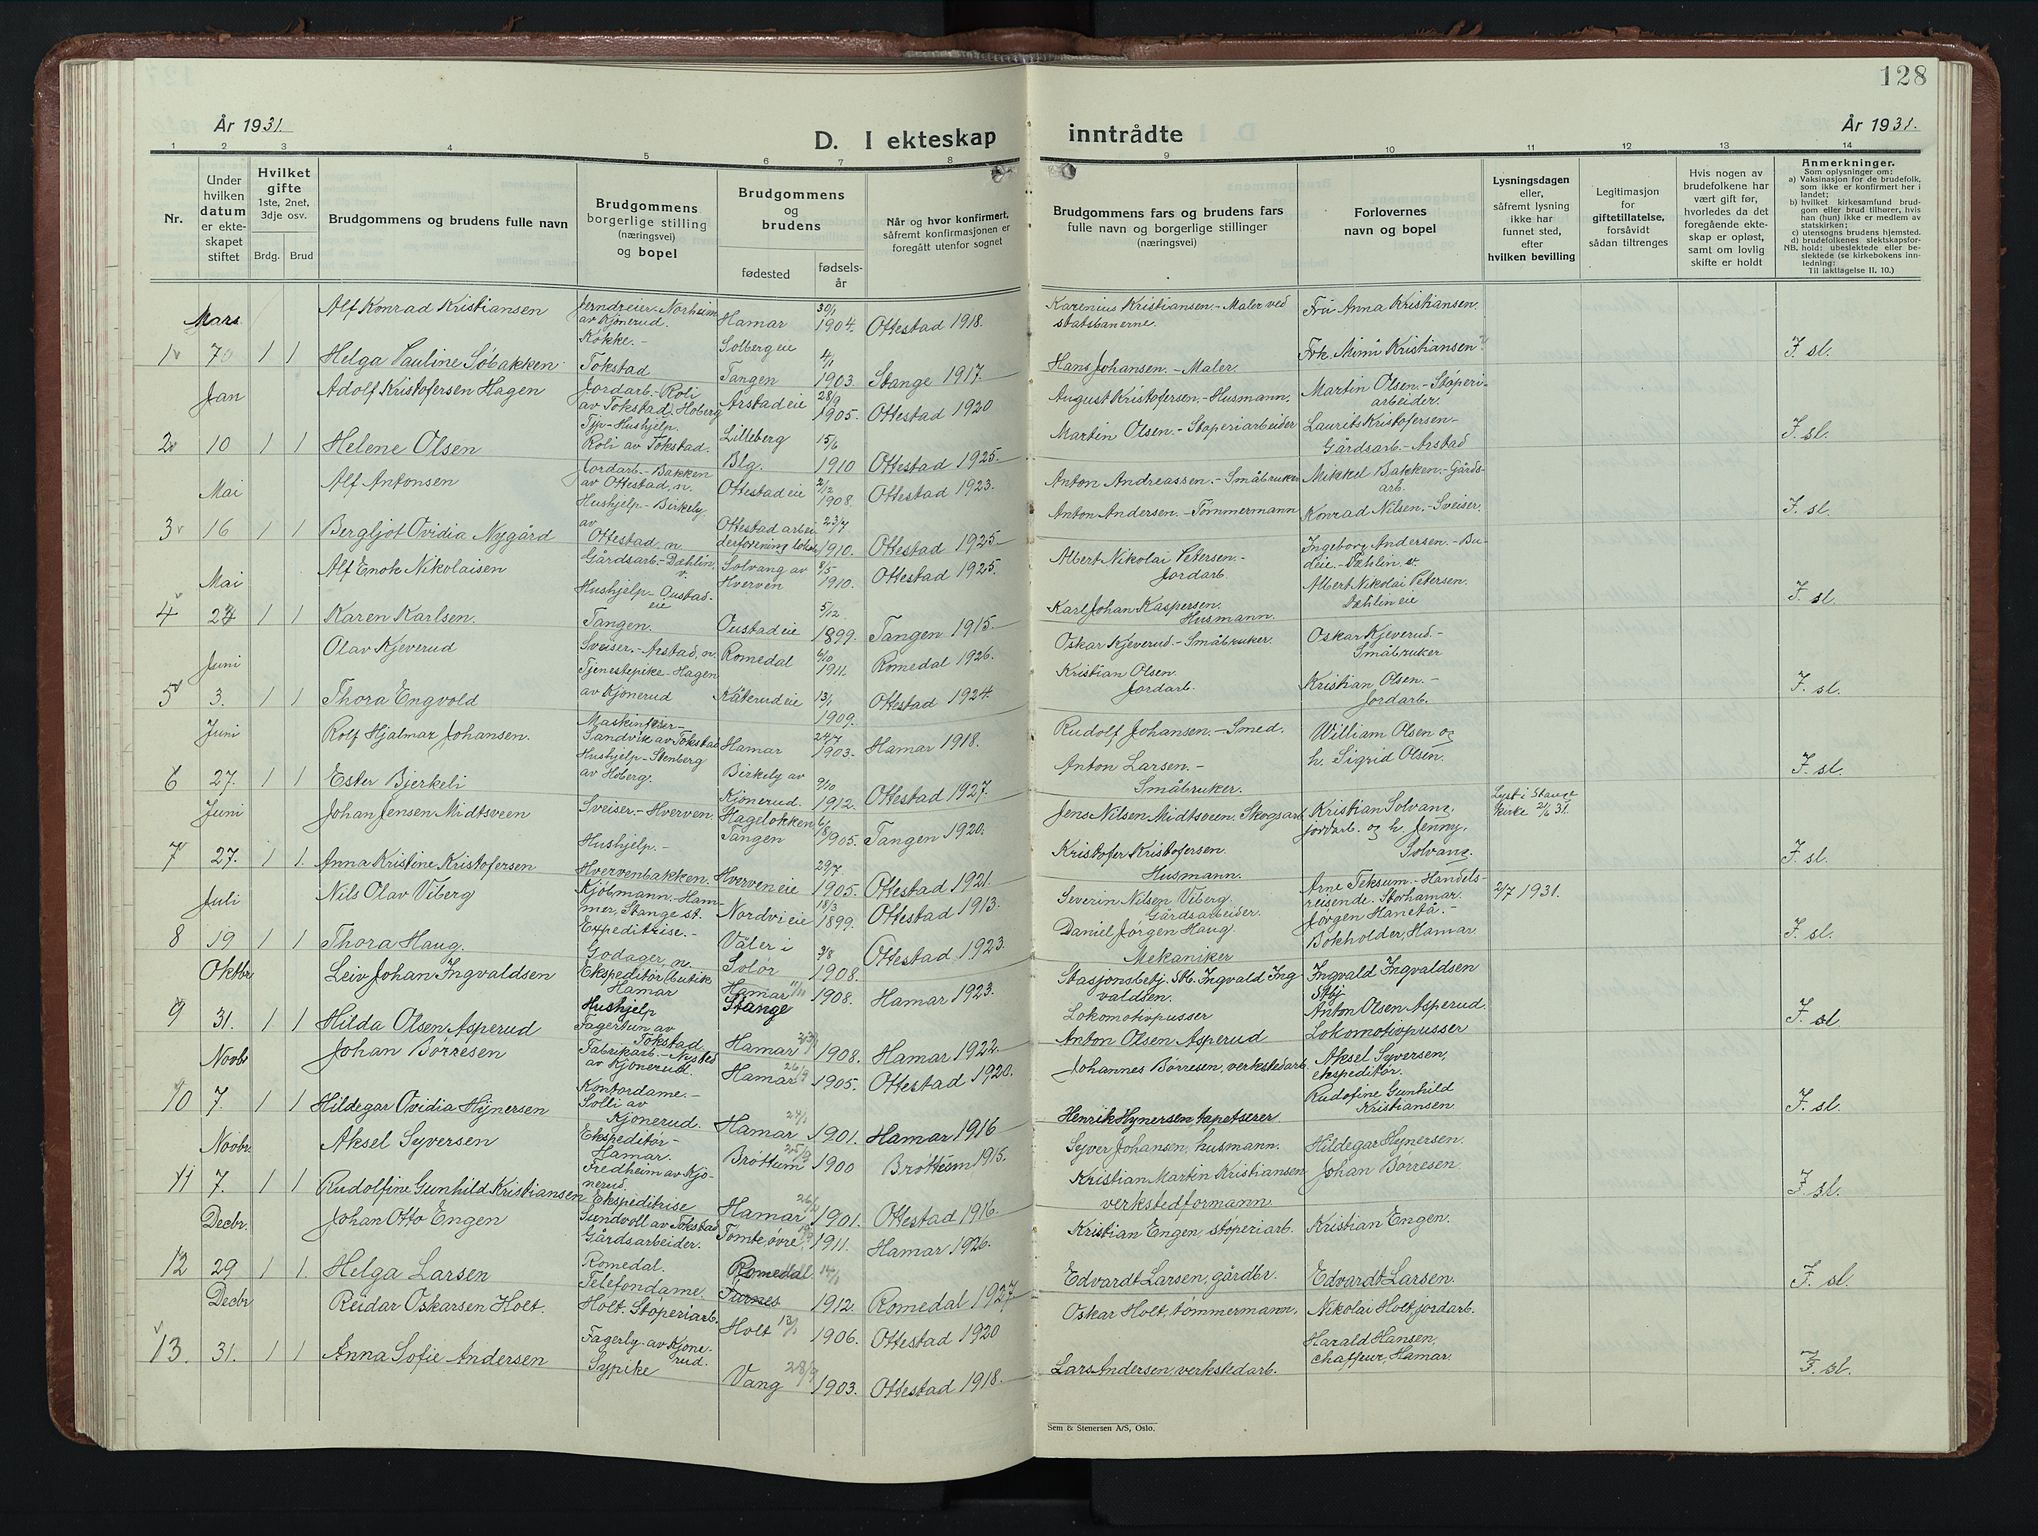 128
År 1931.
D. I ekteskap
inntrådte
År 1931.
1 2 3 4 5 6 7 8 9 10 11 12 13 14
Nr.
Under hvilken datum er ekteskapet stiftet
Hvilket gifte 1ste, 2net, 3dje osv.
Brdg. Brud
Brudgommens og brudens fulle navn
Brudgommens borgerlige stilling (næringsvei) og bopel
Brudgommens og brudens
fødested
fødselsår
Når og hvor konfirmert, såfremt konfirmasjonen er foregått utenfor sognet
Brudgommens fars og brudens fars fulle navn og borgerlige stillinger (næringsvei)
Forlovernes navn og bopel
Lysningsdagen eller, såfremt lysning ikke har funnet sted, efter hvilken bevilling
Legitimasjon for giftetillatelse, forsåvidt sådan tiltrenges
Hvis nogen av brudefolkene har vært gift før, hvorledes da det foregående ekteskap er opløst, samt om lovlig skifte er holdt
Anmerkninger.
Som oplysninger om:
a) Vaksinasjon for de brudefolk, som ikke er konfirmert her i landet;
b) hvilket kirkesamfund brudgom eller brud tilhører, hvis han (hun) ikke er medlem av statskirken;
c) utensogns brudens hjemsted.
d) brudefolkenes slektskapsforhold: ubeslektede eller beslektede (se kirkebokens innledning: Til iakttagelse II. 10.)
NB.
Mars Alf Konrad Kristiansen Jerndreier - Norheim av Kjonerud. Hamar 30/1 1904. Ottestad 1918. Karenius Kristiansen. - Maler ved statsbanerne. Fru Anna Kristiansen.
1 7 1 1 Helga Pauline Søbakken Kokke. - Tokstad Solbergeie Tangen 4/1 1903. Stange 1917. Hans Johansen. - Maler. Frk. Mimi Kristiansen F. sl.
Jan Adolf Kristofersen Hagen Jordarb. - Roli av Tokstad, Hoberg Arstadeie 28/9 1905. Ottestad 1920 August Kristofersen. - Husmann. Martin Olsen. - Stoperiarbeider.
2 10 1 1 Helene Olsen Hushjelp. Roli av Tokstad. Lilleberg Blg. 15/6 1910 Ottestad 1925. Martin Olsen. - Stoperiarbeider Laurits Kristofersen - Gårdsarb - Arstad F. sl.
Mai Alf Antonsen Jordarb. - Bakken av Ottestad, n. Ottestadeie 2/12 1908. Ottestad 1923. Anton Andreassen. - Småbruker Mikkel Bakken. - Gårdsarb.
3 16 1 1 Bergljot Ovidia Nygård Hushjelp - Birkely, av Ottestad, n. Ottestad arbeiderforening lokale 23/7 1910. Ottestad 1925 Anton Andersen. - Tommermann Konrad Nilsen. - Sveiser. F. sl.
Mai Alf Enok Nikolaisen Gårdsarb. - Dæhlin, v. Solvang av Hverven 8/5 1910. Ottestad 1925. Albert Nikolai Petersen. - Jordarb. Ingeborg Andersen. - Budeie. - Dæhlin, v.
4 24 1 1 Karen Karlsen. Hushjelp - Oustadeie Tangen. Oustadeie 5/12 1899. Tangen 1915. Karl Johan Kaspersen. Husmann. Albert Nikolai Petersen. Dæhlineie F. sl.
Juni Olav Kjeverud Sveiser. - Arstad, n. Romedal 6/10 1911. Romedal 1926. Oskar Kjeverud. - Småbruker. Oskar Kjeverud. - Småbruker
5 3. 1 1 Thora Engvold Tjenestepike - Hagen av Kjonerud Kåterudeie 13/1 1909. Ottestad 1924. Kristian Olsen Jordarb. Kristian Olsen. - Jordarb. F. sl.
Juni Rolf Hjalmar Johansen. Sandvik av Tokstad Hamar 24/7 1903. Hamar 1918. Rudolf Johansen. - Smed. William Olsen og
6 27. 1 1 Ester Bjerkeli Hushjelp - Stenberg av Hoberg. Birkely av Kjonerud. 9/10 1912. Ottestad 1927. Anton Larsen. - Småbruker. h. Sigrid Olsen. F. sl.
Juni Johan Jensen Midtsveen Sveiser. - Hverven. Hagelokken Tangen 6/8 1905. Tangen 1920. Jens Nilsen Midtsveen. Skogsarb. Kristian Solvang, jordarb. og h. Jenny, Lyst i Stange kirke 21/6 31.
7 27. 1 1. Anna Kristine Kristofersen Hushjelp. - Hvervenbakken. Hverveneie 29/7 1905. Ottestad 1921. Kristofer Kristofersen. Husmann. Solvang. F. sl.
Juli Nils Olav Viberg Kjobmann. - Hammer, Stange st. Nordvieie 18/3 1899. Ottestad 1913. Severin Nilsen Viberg. Gårdsarbeider. Arne Teksum - Handelsreisende. Storhamar. 2/7 1931.
8 19 1 1 Thora Haug. Expeditrise. - Godager, n. Våler i Solør 7/8 1908. Ottestad 1923. Daniel Jørgen Haug. Mekaniker Jørgen Hanetå. - Bokholder, Hamar F. sl.
Oktbr Leiv Johan Ingvaldsen Ekspeditør (butik Hamar Hamar 11/11 1908. Hamar 1923. Stasjonsbetj. Stb. Ingvald Ingvaldsen. Ingvald Ingvaldsen Stbj
9 31. 1 1 Hilda Olsen Asperud Hushjelp Fagertun av Tokstad Stange Hamar 1908. Hamar 1922. Lokomotivpusser Anton Olsen Asperud Anton Olsen Asperud. Lokomotivpusser F. sl.
Novbr Johan Børresen Fabrikarb. - Nysted av Kjonerud. Hamar 26/9 1905. Ottestad 1920. Johannes Børresen, verkstedarb. Aksel Syversen, ekspeditør.
10 7. 1 1 Hildegar Ovidia Hynersen Kontordame. - Solli av Kjonerud. Hamar 24/1 1901. Hamar 1916 Henrik Hynersen tapetserer Rudofine Gunhild Kristiansen F. sl.
Novbr. Aksel Syversen Ekspeditor - Hamar. Brøttum 25/9 1900 Brøttum 1915. Syver Johansen, husmann. Hildegar Hynersen.
11 7. 1 1 Rudolfine Gunhild Kristiansen Fredheim av Kjonerud. Ekspeditrise Hamar 1901. Ottestad 1916. Kristian Martin Kristiansen verkstedformann Johan Børresen F. sl.
Decbr. Johan Otto Engen Sundvoll av Tokstad Gårdsarbeider. Tomte, øvre 1911. Hamar 1926. Kristian Engen, støperiarb. Kristian Engen.
12 29 1 1. Helga Larsen Romedal. Telefondame. Romedal Furnes 14/1 1912. Romedal 1927 Edvardt Larsen, gårdbr. Edvardt Larsen. F. sl.
Decbr Reidar Oskarsen Holt. Holt. Støperiarb. Holt 1906. Ottestad 1920 Oskar Holt, tømmermann. Nikolai Holt, jordarb.
13. 31. 1 1 Anna Sofie Andersen Fagerly av Kjonerud. Sypike Vang 28/9 1903. Ottestad 1918. Lars Andersen, verkstedarb. Harald Hansen, chaffeur, Hamar. F. sl.
Sem & Stenersen A/S, Oslo.